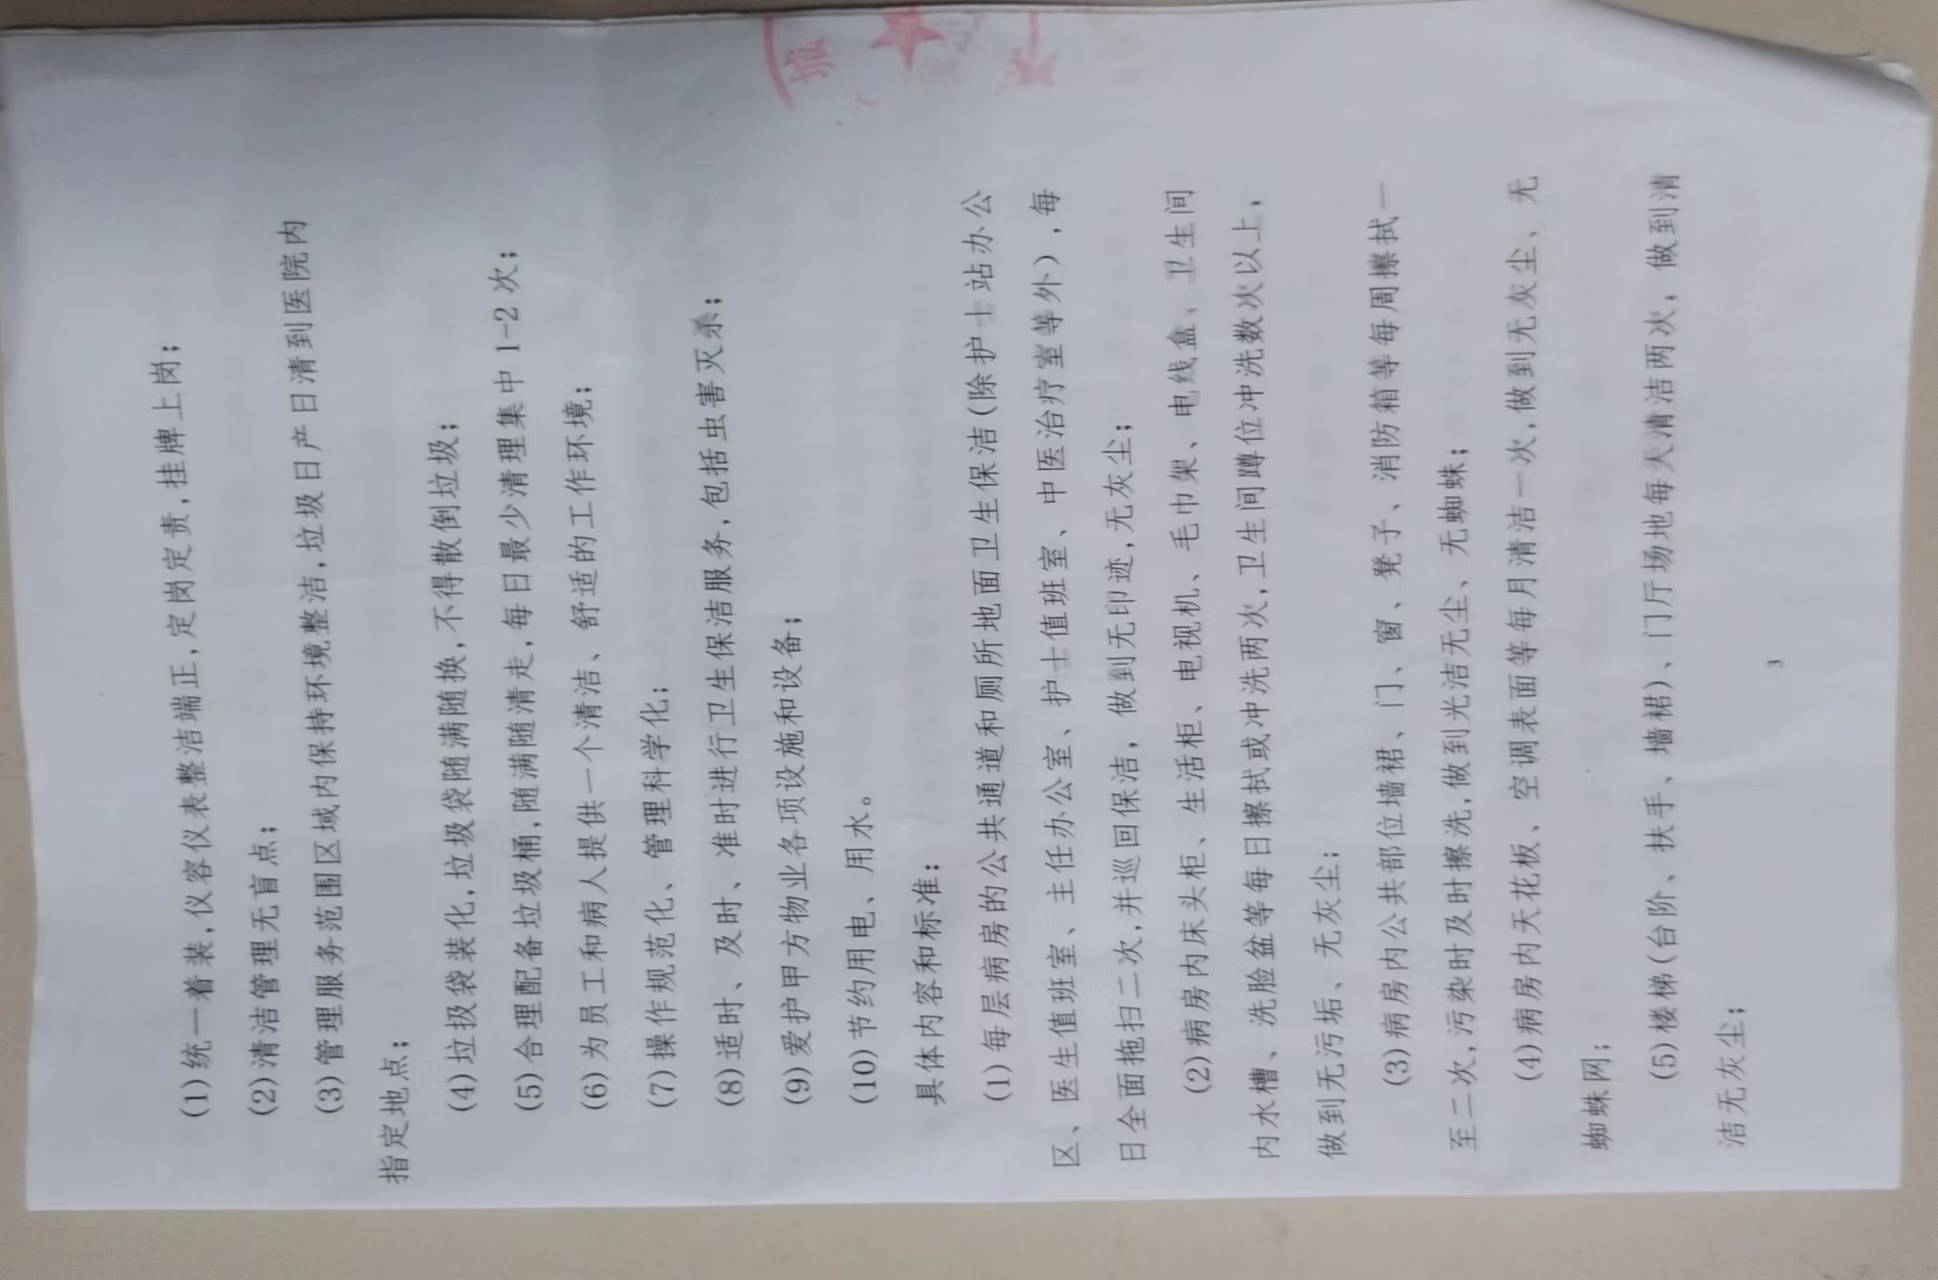 (1)统一着装,仪容仪表整洁端正,定岗定责,挂牌上岗;
(2)清洁管理无盲点;
(3)管理服务范围区域内保持环境整洁,垃圾日产日清到医院内
指定地点;
(4)垃圾袋装化,垃圾袋随满随换,不得散倒垃圾;
(5)合理配备垃圾桶,随满随清走,每日最少清理集中1-2次;
(6)为员工和病人提供一个清洁、舒适的工作环境;
(7)操作规范化、管理科学化;
(8)适时、及时、准时进行卫生保洁服务,包括虫害灭杀;
(9)爱护甲方物业各项设施和设备;
(10)节约用电、用水。
具体内容和标准:
(1)每层病房的公共通道和厕所地面卫生保洁(除护士站办公
区、医生值班室、主任办公室、护士值班室、中医治疗室等外),每
日全面拖扫二次,并巡回保洁,做到无印迹,无灰尘;
(2)病房内床头柜、生活柜、电视机、毛巾架、电线盒、卫生间
内水槽、洗脸盆等每日擦拭或冲洗两次,卫生间蹲位冲洗数次以上,
做到无污垢、无灰尘;
(3)病房内公共部位墙裙、门、窗、凳子、消防箱等每周擦拭一
至二次,污染时及时擦洗,做到光洁无尘、无蜘蛛;
(4)病房内天花板、空调表面等每月清洁一次,做到无灰尘、无
蜘蛛网;
(5)楼梯(台阶、扶手、墙裙)、门厅场地每天清洁两次,做到清
洁无灰尘;
3